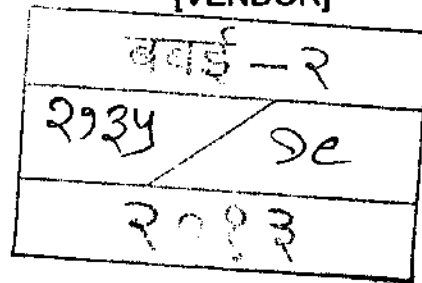 [VENDOR]
बबई - २
२१३५ / १८
२०१३